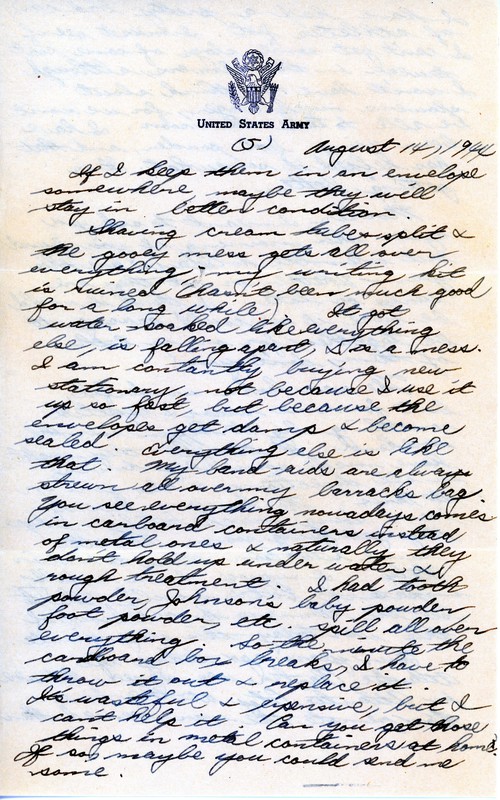 UNITED STATES ARMY
(5) August 14, 1944
If I keep them in an envelope
somewhere maybe they will
stay in better condition.
Shaving cream tubes split &
the gooey mess gets all over
everything; my writing kit
is ruined (hasn't been much good
for a long while.) It got
water soaked like everything
else, is falling apart, & is a mess.
I am contantly buying new
stationary not because I use it
up so fast, but because the
envelopes get damp & become
sealed. Everything else is like
that. My band-aids are always
strewn all over my barracks bag.
You see everything nowadays comes
in carboard containers instead
of metal ones & naturally they
don't hold up under water &
rough treatment. I had tooth
powder, Johnson's baby powder
foot powder, etc. spill all over
everything. So the minute the
cardboard box breaks, I have to
throw it out & replace it.
Its wasteful & expensive, but I
cant help it. Can you get those
things in metal containers at home?
If so, maybe you could send me
some.